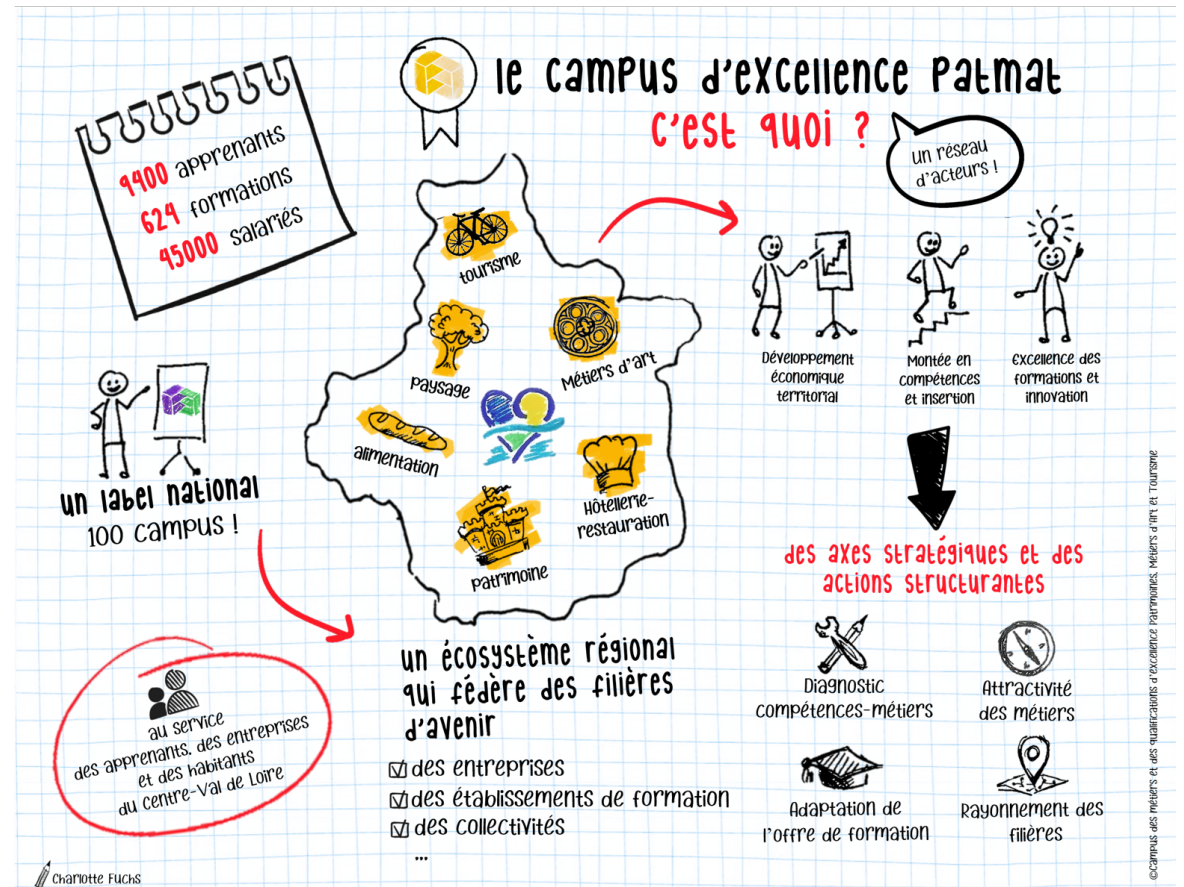 le campus d'excellence Patmat
c'est quoi ?
un réseau
d'acteurs !
9400 apprenants
624 formations
45000 salariés
tourisme
paysage
Métiers d'art
alimentation
Hôtellerie-
restauration
patrimoine
Développement
économique
territorial
Montée en
compétences
et insertion
Excellence des
formations et
innovation
un label national
100 campus !
des axes stratégiques et des
actions structurantes
Diagnostic
compétences-métiers
Attractivité
des métiers
Adaptation de
l'offre de formation
Rayonnement des
filières
un écosystème régional
qui fédère des filières
d'avenir
des entreprises
des établissements de formation
des collectivités
...
au service
des apprenants, des entreprises
et des habitants
du Centre-Val de Loire
Charlotte Fuchs
©Campus des métiers et des qualifications d'excellence Patrimoines, Métiers d'Art et Tourisme